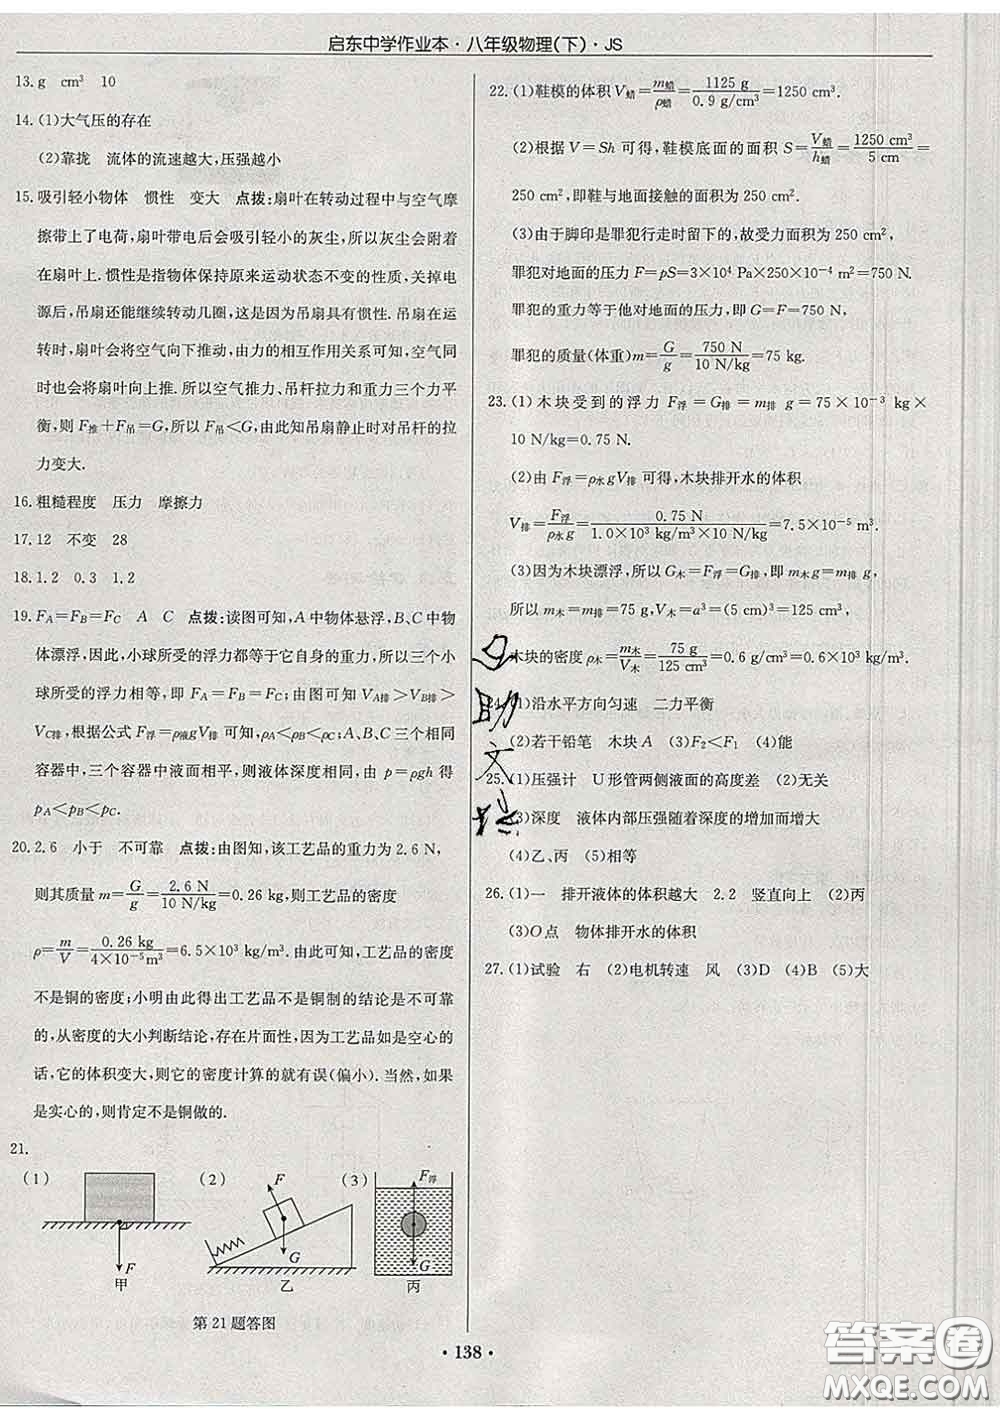 启东中学作业本·八年级物理(下)·JS
13. g cm³ 10
14. (1)大气压的存在
(2)靠拢 流体的流速越大,压强越小
15. 吸引轻小物体 惯性 变大 点拨:扇叶在转动过程中与空气摩
擦带上了电荷,扇叶带电后会吸引轻小的灰尘,所以灰尘会附着
在扇叶上. 惯性是指物体保持原来运动状态不变的性质,关掉电
源后,吊扇还能继续转动几圈,这是因为吊扇具有惯性. 吊扇在运
转时,扇叶会将空气向下推动,由力的相互作用关系可知,空气同
时也会将扇叶向上推. 所以空气推力、吊杆拉力和重力三个力平
衡,则 F推+F吊=G,所以 F吊<G,由此知吊扇静止时对吊杆的拉
力变大.
16. 粗糙程度 压力 摩擦力
17. 12 不变 28
18. 1.2 0.3 1.2
19. F_A=F_B=F_C A C 点拨:读图可知,A 中物体悬浮,B、C 中物
体漂浮,因此,小球所受的浮力都等于它自身的重力,所以三个小
球所受的浮力相等,即 F_A=F_B=F_C;由图可知 V_A排>V_B排>
V_C排,根据公式 F浮=ρ液gV排 可知,ρ_A<ρ_B<ρ_C;A、B、C 三个相同
容器中,三个容器中液面相平,则液体深度相同,由 p=ρgh 得
p_A<p_B<p_C.
20. 2.6 小于 不可靠 点拨:由图知,该工艺品的重力为 2.6 N,
则其质量 m=G/g=2.6 N/10 N/kg=0.26 kg,则工艺品的密度
ρ=m/V=0.26 kg/4×10⁻⁵m³=6.5×10³ kg/m³. 由此可知,工艺品的密度
不是铜的密度;小明由此得出工艺品不是铜制的结论是不可靠
的,从密度的大小判断结论,存在片面性,因为工艺品如是空心的
话,它的体积变大,则它的密度计算的就有误(偏小). 当然,如果
是实心的,则肯定不是铜做的.
21.
(1) F 甲
(2) F G 乙
(3) F浮 G 丙
第 21 题答图
22. (1)鞋模的体积 V蜡=m蜡/ρ蜡=1125 g/0.9 g/cm³=1250 cm³.
(2)根据 V=Sh 可得,鞋模底面的面积 S=V蜡/h蜡=1250 cm³/5 cm=
250 cm²,即鞋与地面接触的面积为 250 cm².
(3)由于脚印是罪犯行走时留下的,故受力面积为 250 cm²,
罪犯对地面的压力 F=pS=3×10⁴ Pa×250×10⁻⁴ m²=750 N.
罪犯的重力等于他对地面的压力,即 G=F=750 N,
罪犯的质量(体重)m=G/g=750 N/10 N/kg=75 kg.
23. (1)木块受到的浮力 F浮=G排=m排 g=75×10⁻³ kg×
10 N/kg=0.75 N.
(2)由 F浮=ρ水gV排 可得,木块排开水的体积
V排=F浮/ρ水g=0.75 N/1.0×10³ kg/m³×10 N/kg=7.5×10⁻⁵ m³.
(3)因为木块漂浮,所以 G木=F浮=G排,即 m木g=m排 g,
所以 m木=m排=75 g,V木=a³=(5 cm)³=125 cm³,
木块的密度 ρ木=m木/V木=75 g/125 cm³=0.6 g/cm³=0.6×10³ kg/m³.
(1)沿水平方向匀速 二力平衡
(2)若干铅笔 木块 A (3)F₂<F₁ (4)能
25. (1)压强计 U 形管两侧液面的高度差 (2)无关
(3)深度 液体内部压强随着深度的增加而增大
(4)乙、丙 (5)相等
26. (1)一 排开液体的体积越大 2.2 竖直向上 (2)丙
(3)O 点 物体排开水的体积
27. (1)试验 右 (2)电机转速 风 (3)D (4)B (5)大
·138·
答案圈
MXQE.COM